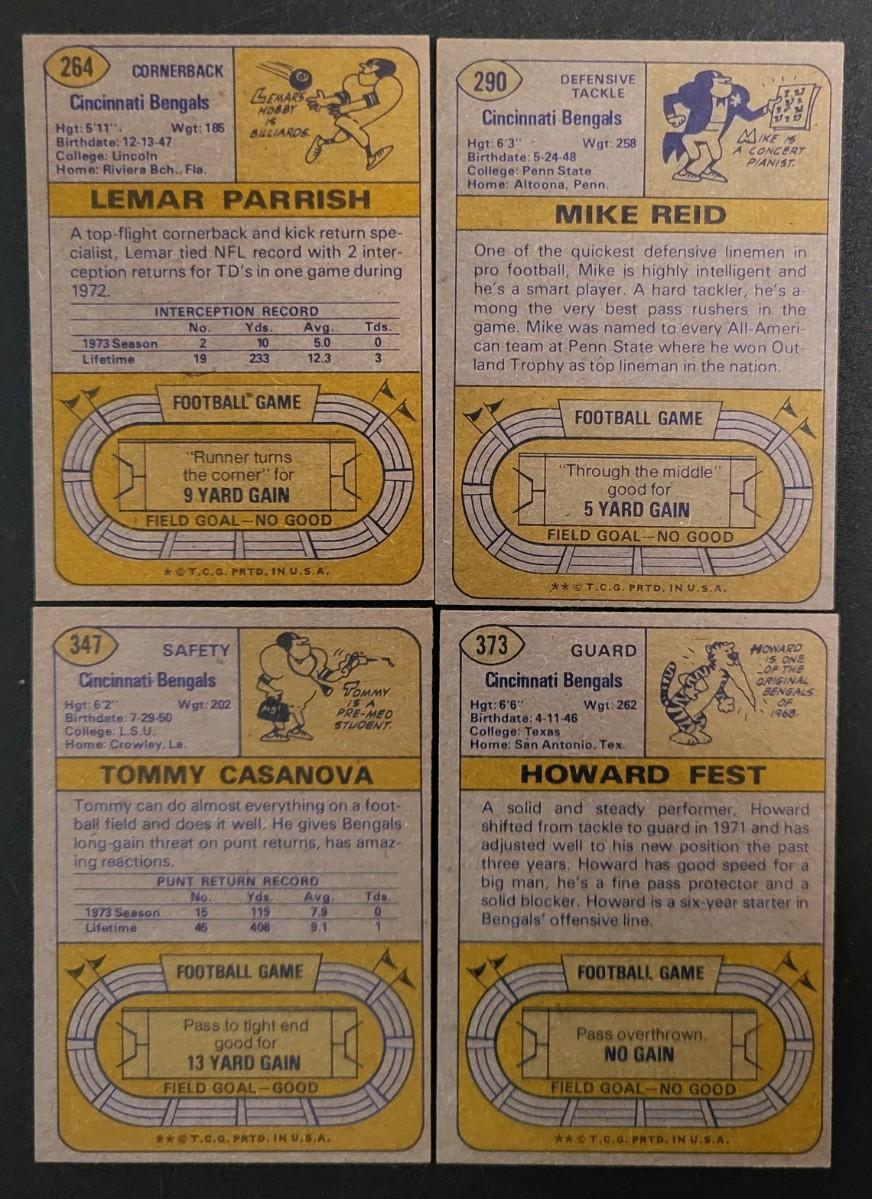 264
CORNERBACK
Cincinnati Bengals
Hgt: 5'11". Wgt: 185
Birthdate: 12-13-47
College: Lincoln
Home: Riviera Bch., Fla.
LEMAR'S
HOBBY
IS
BILLIARDS.
LEMAR PARRISH
A top-flight cornerback and kick return spe-
cialist, Lemar tied NFL record with 2 inter-
ception returns for TD's in one game during
1972.
INTERCEPTION RECORD
No. Yds. Avg. Tds.
1973 Season 2 10 5.0 0
Lifetime 19 233 12.3 3
FOOTBALL GAME
"Runner turns
the corner" for
9 YARD GAIN
FIELD GOAL—NO GOOD
* © T.C.G. PRTD. IN U.S.A.
290
DEFENSIVE
TACKLE
Cincinnati Bengals
Hgt: 6'3" Wgt: 258
Birthdate: 5-24-48
College: Penn State
Home: Altoona, Penn.
MIKE IS
A CONCERT
PIANIST.
MIKE REID
One of the quickest defensive linemen in
pro football, Mike is highly intelligent and
he's a smart player. A hard tackler, he's a-
mong the very best pass rushers in the
game. Mike was named to every All-Ameri-
can team at Penn State where he won Out-
land Trophy as top lineman in the nation.
FOOTBALL GAME
"Through the middle"
good for
5 YARD GAIN
FIELD GOAL—NO GOOD
** © T.C.G. PRTD. IN U.S.A.
347
SAFETY
Cincinnati Bengals
Hgt: 6'2" Wgt: 202
Birthdate: 7-29-50
College: L.S.U.
Home: Crowley, La.
TOMMY
IS A
PRE-MED
STUDENT.
TOMMY CASANOVA
Tommy can do almost everything on a foot-
ball field and does it well. He gives Bengals
long-gain threat on punt returns, has amaz-
ing reactions.
PUNT RETURN RECORD
No. Yds. Avg. Tds.
1973 Season 15 119 7.9 0
Lifetime 45 408 9.1 1
FOOTBALL GAME
Pass to tight end
good for
13 YARD GAIN
FIELD GOAL—GOOD
** © T.C.G. PRTD. IN U.S.A.
373
GUARD
Cincinnati Bengals
Hgt: 6'6" Wgt: 262
Birthdate: 4-11-46
College: Texas
Home: San Antonio, Tex.
HOWARD
IS ONE
OF THE
ORIGINAL
BENGALS
OF
1968.
HOWARD FEST
A solid and steady performer, Howard
shifted from tackle to guard in 1971 and has
adjusted well to his new position the past
three years. Howard has good speed for a
big man, he's a fine pass protector and a
solid blocker. Howard is a six-year starter in
Bengals' offensive line.
FOOTBALL GAME
Pass overthrown.
NO GAIN
FIELD GOAL—NO GOOD
** © T.C.G. PRTD. IN U.S.A.